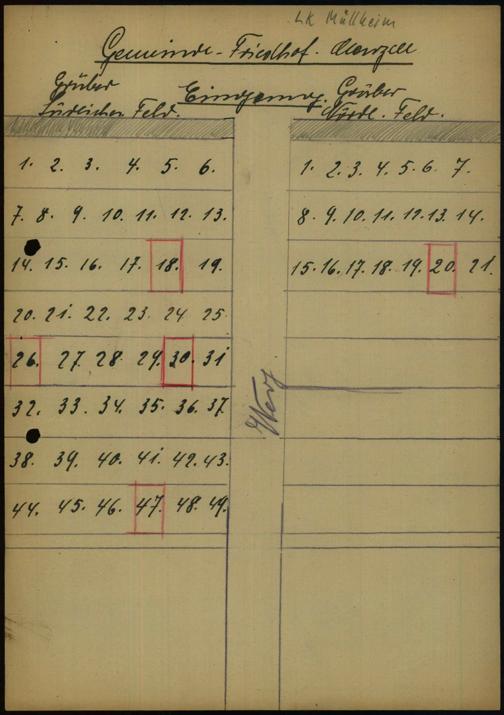 LK Müllheim
Gemeinde-Friedhof.
Gräber
Südlichen Feld.
Eingang.
Gräber
Nördl. Feld.
1. 2. 3. 4. 5. 6.
7. 8. 9. 10. 11. 12. 13.
14. 15. 16. 17. 18. 19.
20. 21. 22. 23. 24 25.
26. 27. 28. 29. 30. 31
32. 33. 34. 35. 36. 37.
38. 39. 40. 41. 42. 43.
44. 45. 46. 47. 48. 49.
Weg.
1. 2. 3. 4. 5. 6. 7.
8. 9. 10. 11. 12. 13. 14.
15. 16. 17. 18. 19. 20. 21.